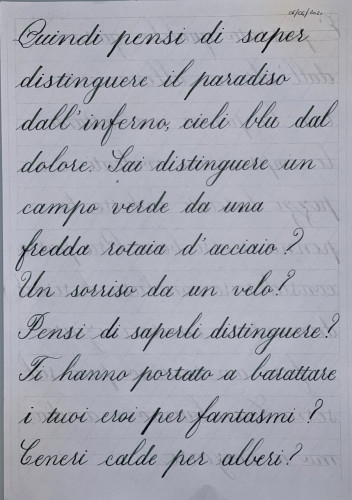 Quindi pensi di saper
distinguere il paradiso
dall'inferno, cieli blu dal
dolore. Sai distinguere un
campo verde da una
fredda rotaia d'acciaio?
Un sorriso da un velo?
Pensi di saperli distinguere?
Ti hanno portato a barattare
i tuoi eroi per fantasmi?
Ceneri calde per alberi?